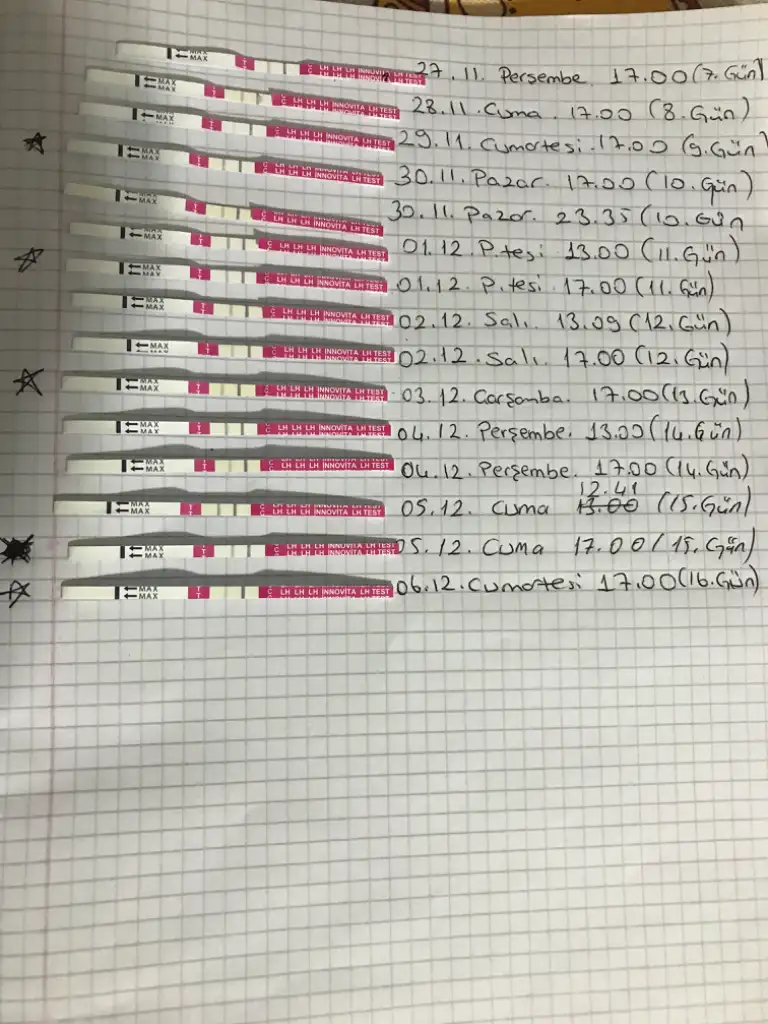 MAX MAX T T C C LH LH LH INNOVITA LH TEST 27.11. Perşembe. 17.00 (7. Gün)
MAX MAX T T C C LH LH LH INNOVITA LH TEST 28.11. Cuma. 17.00 (8. Gün)
MAX MAX T T C C LH LH LH INNOVITA LH TEST 29.11. Cumartesi. 17.00 (9. Gün)
MAX MAX T T C C LH LH LH INNOVITA LH TEST 30.11. Pazar. 17.00 (10. Gün)
MAX MAX T T C C LH LH LH INNOVITA LH TEST 30.11. Pazar. 23.35 (10. Gün
MAX MAX T T C C LH LH LH INNOVITA LH TEST 01.12. P.tesi 13.00 (11. Gün)
MAX MAX T T C C LH LH LH INNOVITA LH TEST 01.12. P.tesi 17.00 (11. Gün)
MAX MAX T T C C LH LH LH INNOVITA LH TEST 02.12. Salı. 13.09 (12. Gün)
MAX MAX T T C C LH LH LH INNOVITA LH TEST 02.12. Salı. 17.00 (12. Gün)
MAX MAX T T C C LH LH LH INNOVITA LH TEST 03.12. Carşamba. 17.00 (13. Gün)
MAX MAX T T C C LH LH LH INNOVITA LH TEST 04.12. Perşembe. 13.00 (14. Gün)
MAX MAX T T C C LH LH LH INNOVITA LH TEST 04.12. Perşembe. 17.00 (14. Gün)
12.41
MAX MAX T T C C LH LH LH INNOVITA LH TEST 05.12. Cuma 13.00 (15. Gün)
MAX MAX T T C C LH LH LH INNOVITA LH TEST 05.12. Cuma 17.00 (15. Gün)
MAX MAX T T C C LH LH LH INNOVITA LH TEST 06.12. Cumartesi 17.00 (16. Gün)